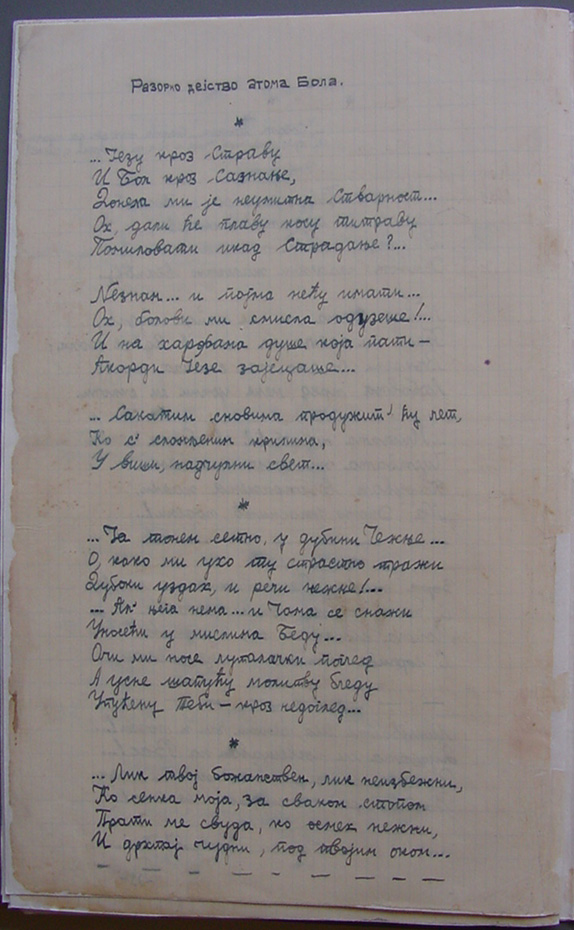 Разорно дејство атома Бола.
*
... Језу кроз Страву
И Бол кроз Сазнање,
Донела ми је неумитна Стварност...
Ох, дали ће плаву косу
Помиловати икад Страдање?...
Незнам... и појма нећу имати...
Ох, болови ми смисла одузеше!...
И на харфама душе која пати —
Акорди Језе зајецаше...
... Сакатим сновима продужит' ћу лет,
Ко с' сломљеним крилима,
У виши, надчулни свет...
*
... Ја тонем сетно, у дубини Чежње...
О, како ми ухо ту страсно тражи
Дубоки уздах, и речи нежне!...
... Ал' њега нема... и Чама се снажи
Уносећи у мислима Беду...
Очи ми носе луталачки поглед
А усне шапућу молитву бледу
Упућену Теби — кроз недоглед...
*
... Лик твој божанствен, лик неизбежни,
Ко сенка моја, за сваком стопом
Прати ме свуда, ко осмех нежни,
И дрхтај чудни, под твојим оком...